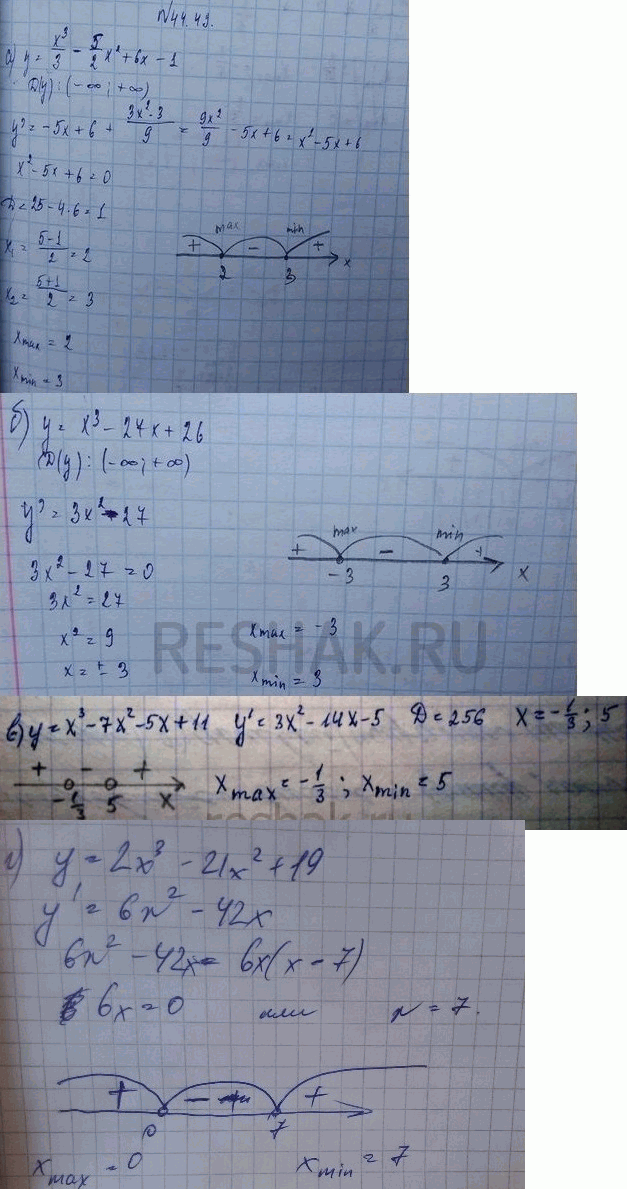 N44.49.
а) y = x³/3 - 5/2 x² + 6x - 1
D(y): (-∞; +∞)
y' = -5x + 6 + 3x²·3/9 = 9x²/9 - 5x + 6 = x² - 5x + 6
x² - 5x + 6 = 0
D = 25 - 4·6 = 1
x₁ = 5-1/2 = 2
x₂ = 5+1/2 = 3
+ max - min +
2 3 x
x max = 2
x min = 3
б) y = x³ - 27x + 26
D(y): (-∞; +∞)
y' = 3x² - 27
3x² - 27 = 0
3x² = 27
x² = 9
x = ± 3
+ max - min +
-3 3 x
x max = -3
x min = 3
RESHAK.RU
в) y = x³ - 7x² - 5x + 11 y' = 3x² - 14x - 5 D = 256 x = -1/3; 5
+ - +
-1/3 5 x
x max = -1/3; x min = 5
reshak.ru
г) y = 2x³ - 21x² + 19
y' = 6x² - 42x
6x² - 42x = 6x(x - 7)
6x = 0 или x = 7.
+ - +
0 7
x max = 0 x min = 7